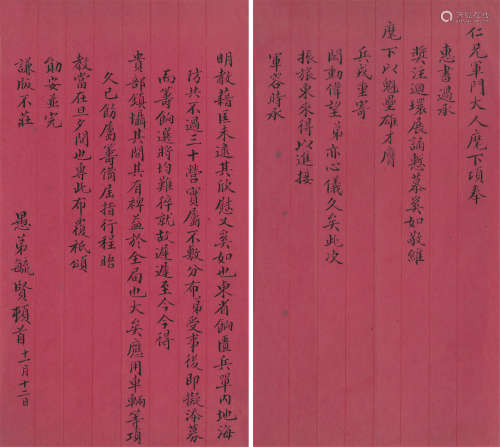 仁兄軍門大人麾下項奉
惠書過承
獎注迴環展誦慙慕奚如敬維
麾下以魁壘雄才膺
兵戎重寄
閎動偉望弟亦心儀久矣此次
振旅東來得以進接
軍容時承
明教藉匡未逮其欣慰又奚如也東省餉匱兵單內地海
防共不過三十營實屬不敷分布弟受事後即擬添募
而籌餉選將均難猝就故遲遲至今今得
貴部鎮懾其間其有裨益於全局也大矣應用車輛等項
久已飭屬籌備屈指行程昭
教當在旦夕間也專此布覆祇頌
勛安並完
謙版不莊
愚弟毓賢頓首十一月十二日